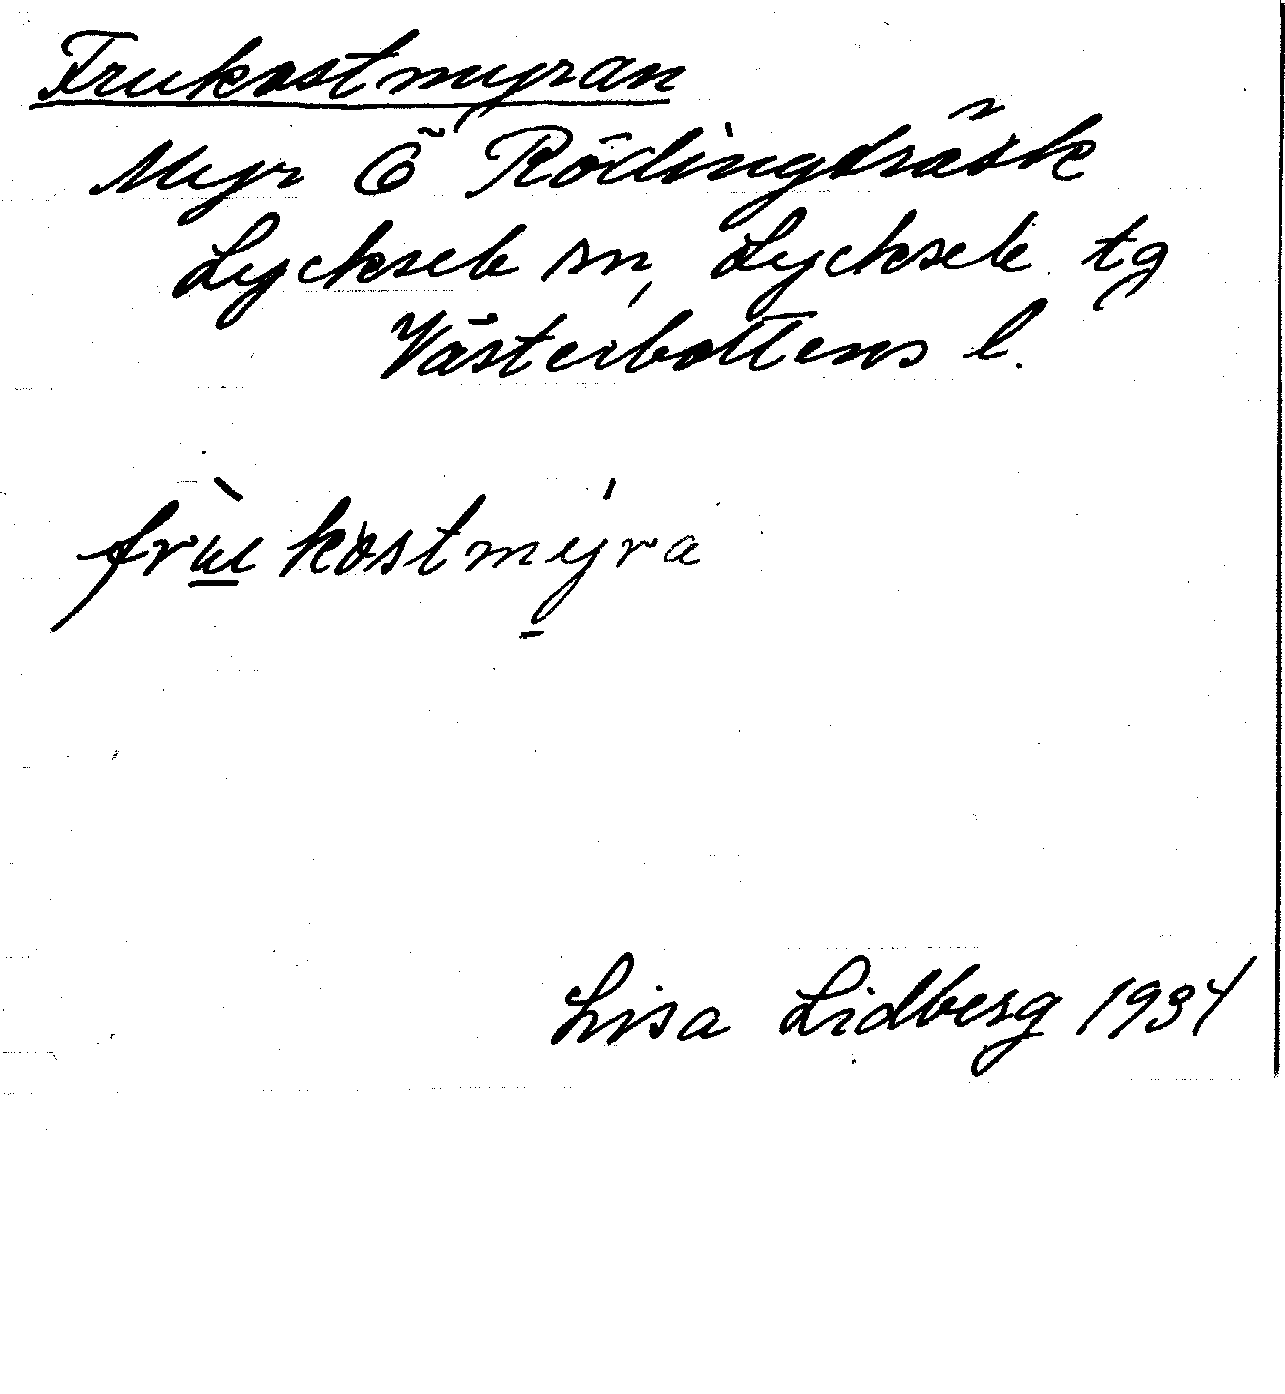 Frukostmyran
Myr Ö Rödingträsk
Lycksele sn, Lycksele tg
Västerbottens l.
frù̱kostmý̱ra
Lisa Lidberg 1934